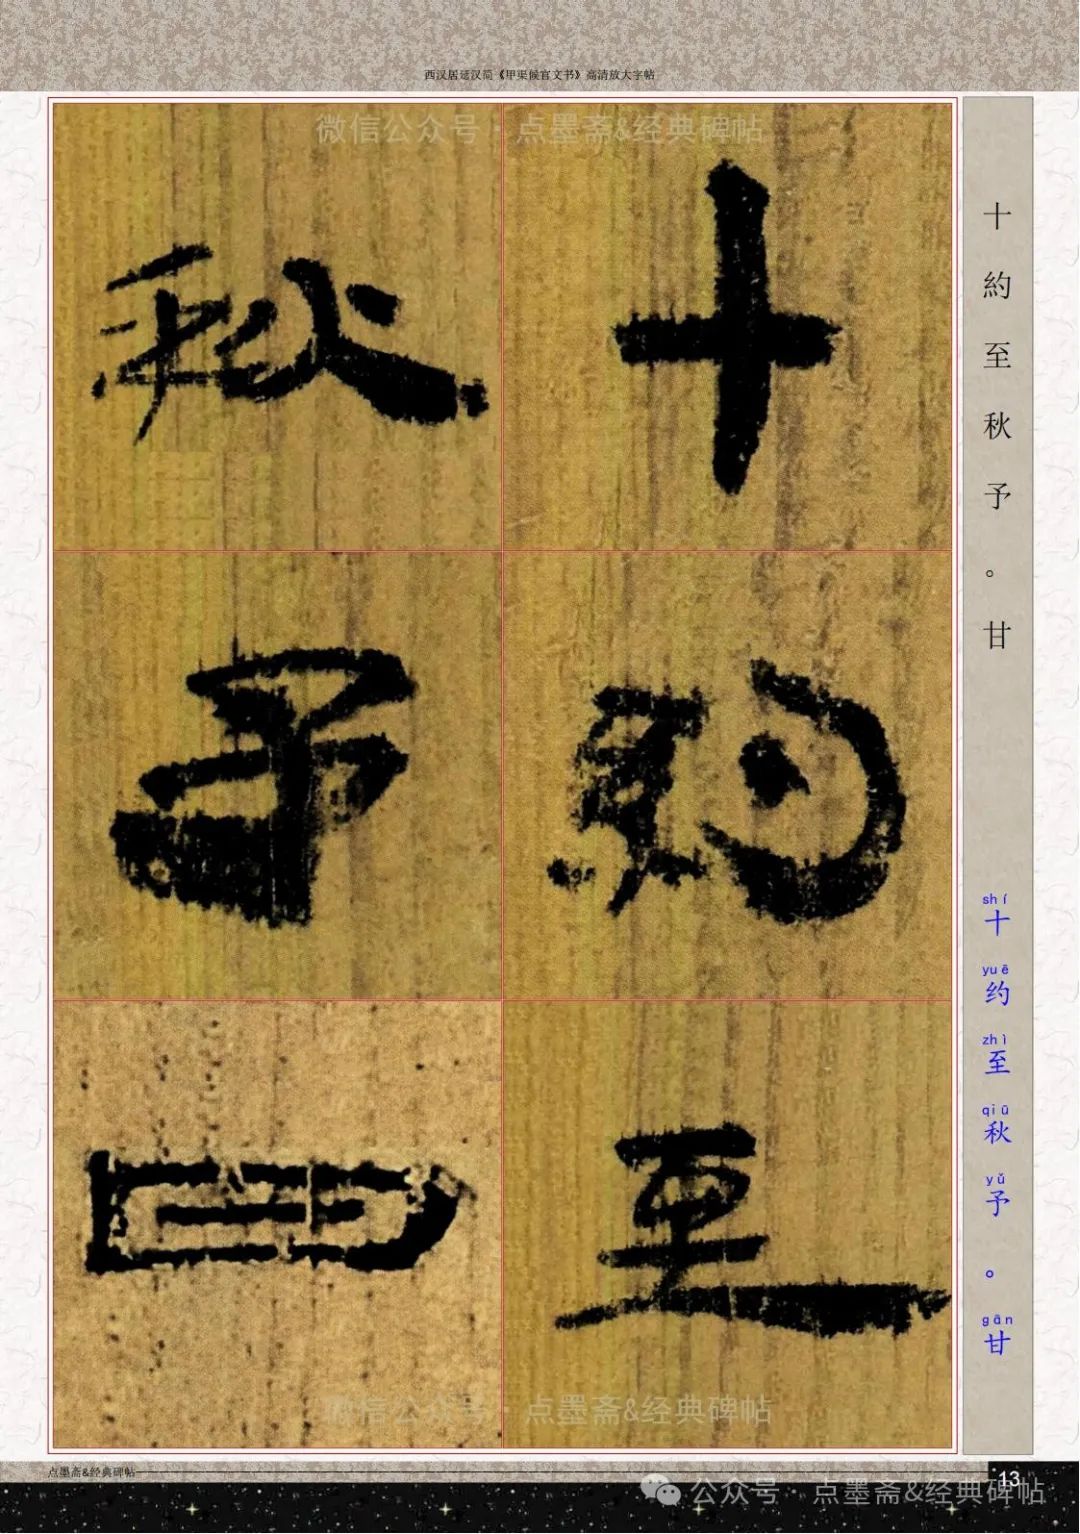 西汉居延汉简《甲渠候官文书》高清放大字帖
微信公众号·点墨斋&经典碑帖
十約至
秋予甘
十約至秋予。甘
shí yuē zhì qiū yǔ gān
十约至秋予。甘
微信公众号·点墨斋&经典碑帖
点墨斋&经典碑帖
13
公众号·点墨斋&经典碑帖